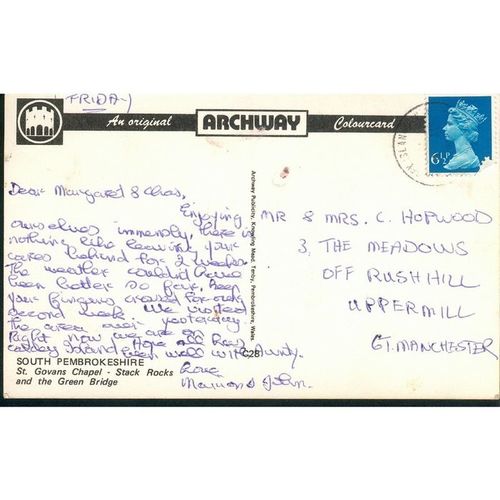 (FRIDAY)
An original ARCHWAY Colourcard
6½P
Dear Margaret & Chas,
Enjoying
ourselves immensly, there is
nothing like leaving your
cares behind for 2 weeks.
The weather couldnt have
been better so far, keep
your fingers crossed for our
second week. We visited
the area over yesterday.
Right now we are on
Caldey Island. Hope all has
been well with
Love
John.
MR & MRS. C. HOPWOOD
3, THE MEADOWS
OFF RUSH HILL
UPPERMILL
GT. MANCHESTER
Archway Publicity, Knowling Mead, Tenby, Pembrokeshire, Wales.
C28
SOUTH PEMBROKESHIRE
St. Govans Chapel - Stack Rocks
and the Green Bridge